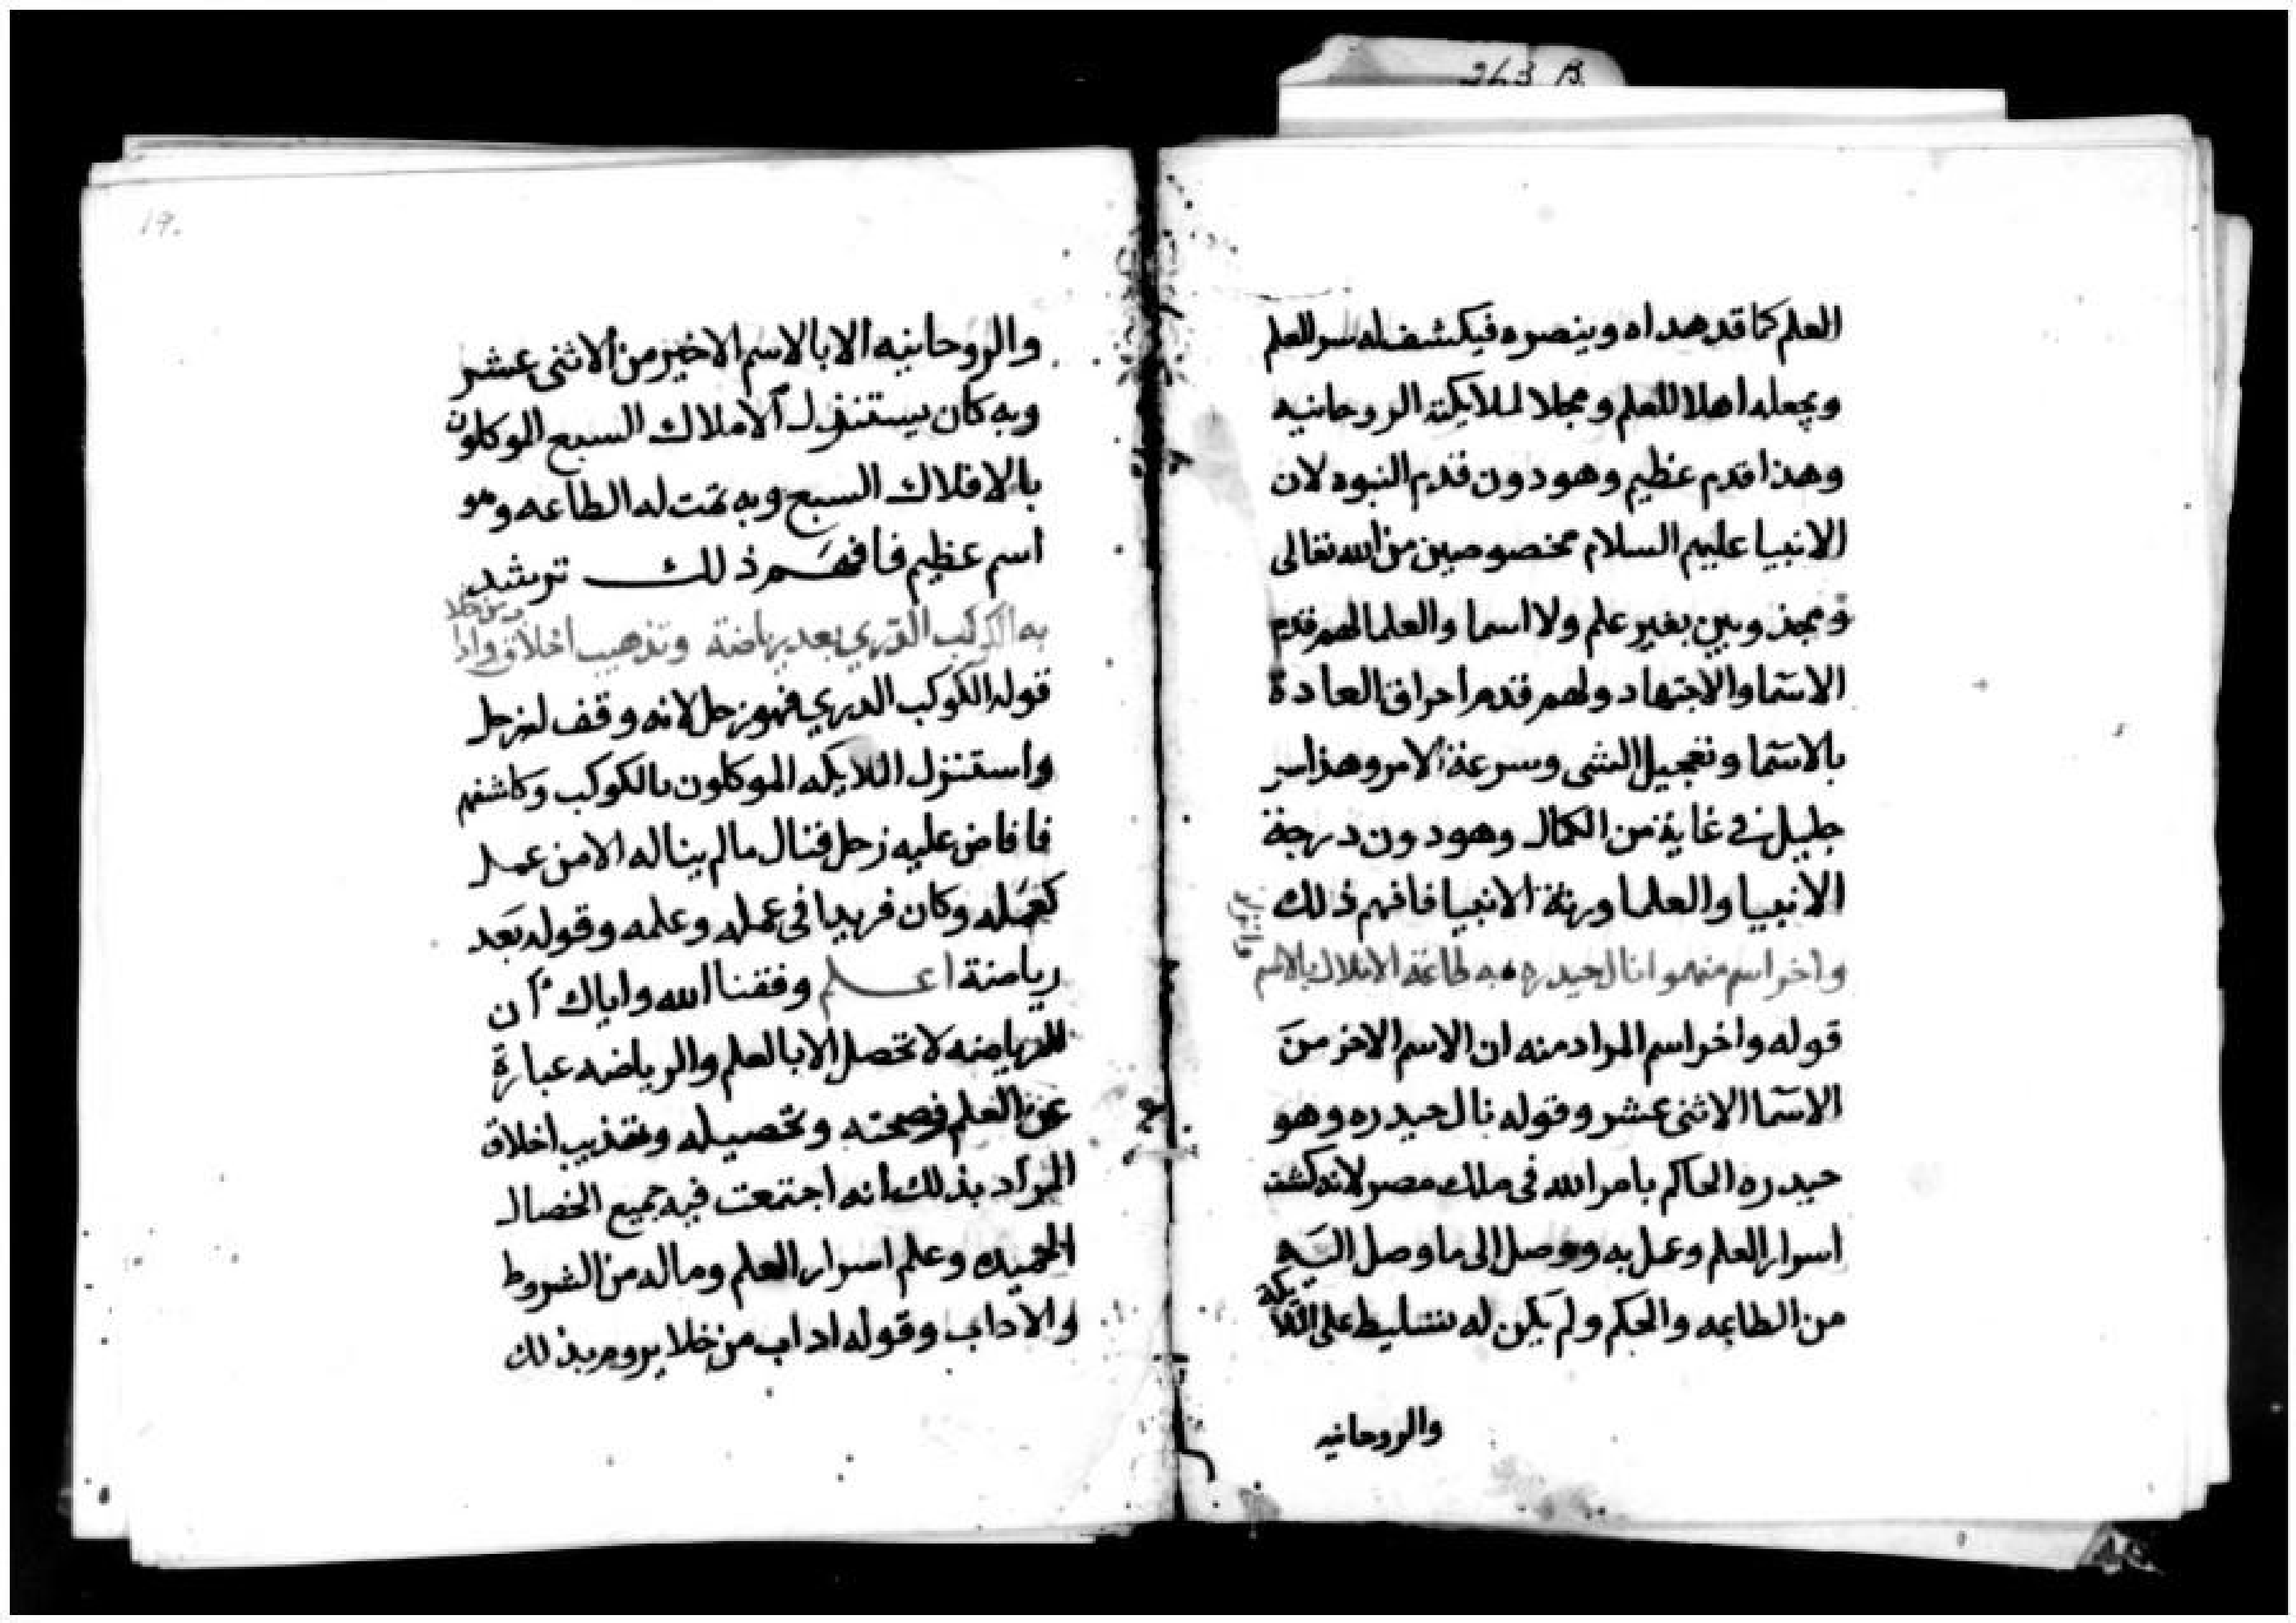 263 B.
العلم كما قد هداه وينصره فيكشف له سر العلم
ويجعله اهلا للعلم ومحلا لملايكة الروحانيه
وهذا قدم عظيم وهو دون قدم النبوه لان
الانبيا عليهم السلام مخصوصين من الله تعالى
ومجذوبين بغير علم ولا اسما والعلما لهم قدم
الاسما والاجتهاد ولهم قدم احراق العادة
بالاسما وتعجيل الشى وسرعة الامر وهذا سر
جليل فى غاية من الكمال وهو دون درجة
الانبيا والعلما ورثة الانبيا فافهم ذلك
واخر اسم منهموا نال حيدره به طاعة الاملاك بالاسم
قوله واخر اسم المراد منه ان الاسم الاخر من
الاسما الاثنى عشر وقوله نال حيدره وهو
حيدره الحاكم بامر الله فى ملك مصر لانه كشف
اسرار العلم وعمل به ووصل الى ما وصل اليه
من الطاعه والحكم ولم يكن له تسليط على الملايكة
والروحانيه
19.
والروحانيه الا بالاسم الاخير من الاثنى عشر
وبه كان يستنزل الاملاك السبع الموكلون
بالافلاك السبع وبه تمت له الطاعه وهو
اسم عظيم فافهم ذلك ترشد
به الكوكب الدري بعد رياضة وتذهيب اخلاق واداب من خلا
قوله الكوكب الدري فهو زحل لانه وقف لزحل
واستنزل الملايكه الموكلون بالكوكب وكاشفهم
فافاض عليه زحل فنال مالم يناله الا من عمل
كعمله وكان فريدا فى عمله وعلمه وقوله بعد
رياضة اعلم وفقنا الله واياك ان
الرياضه لا تحصل الا بالعلم والرياضه عبارة
عن العلم وصحته وتحصيله وتهذيب اخلاق
المراد بذلك انه اجتمعت فيه جميع الخصال
الحميده وعلم اسرار العلم وماله من الشروط
والاداب وقوله اداب من خلا يروم بذلك